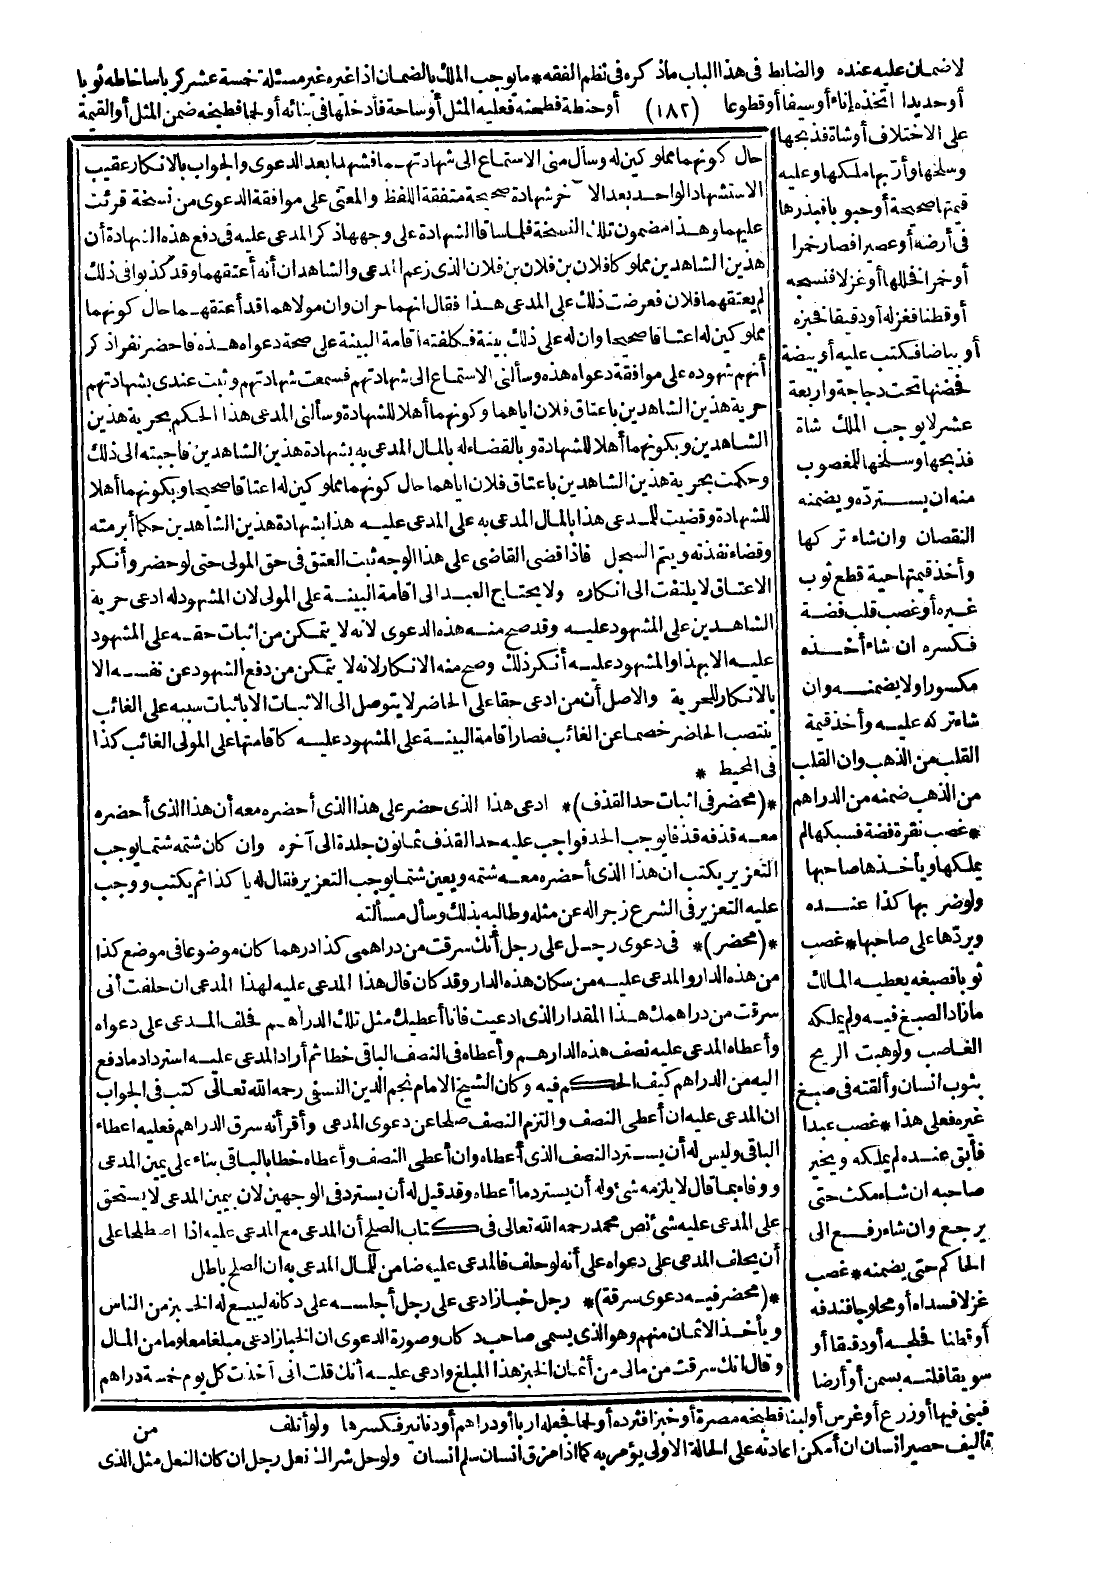 لاضمان عليه عنده والضابط فى هذا الباب ماذكره فى نظم الفقه * مايوجب الملك بالضمان اذا غيره غير مسئلة خمسة عشر كرباسا خاطه ثوبا
أوحديدا اتخذه إناء أوسيفا أوقطوعا (١٨٢) أوحنطة فطحنته فعليه المثل أوساحة فأدخلها فى بنائه أولحما فطبخه ضمن المثل أوالقيمة
على الاختلاف أوشاة فذبحها
وسلخها وأربها ملكها وعليه
قيمتها صحيحة أوحبوبا فبذرها
فى أرضه أوعصيرا فصار خمرا
أوخمرا فخللها أوغزلا فنسجه
أوقطنا فغزله أودقيقا فخبزه
أوبياضا فكتب عليه أوبيضة
فحضنها تحت دجاجة وأربعة
عشر لايوجب الملك شاة
فذبحها وسلخها للمغصوب
منه ان يسترده ويضمنه
النقصان وان شاء تركها
وأخذ قيمتها حية قطع ثوب
غيره أوغصب قلب فضة
فكسره ان شاء أخذه
مكسورا ولا يضمنه وان
شاء تركه عليه وأخذ قيمة
القلب من الذهب وان القلب
من الذهب ضمنه من الدراهم
* غصب نقرة فضة فسبكها لم
يملكها ويأخذها صاحبها
ولو ضربها كذا عنده
ويردها على صاحبها * غصب
ثوبا فصبغه يعطيه المالك
مازاد الصبغ فيه ولم يملكه
الغاصب ولوهبت الريح
بثوب انسان وألقته فى صبغ
غيره فعلى هذا * غصب عبدا
فأبق عنده لم يملكه ويخير
صاحبه ان شاء مكث حتى
يرجع وان شاء رفع الى
الحاكم حتى يضمنه * غصب
غزلا فسداه أومحلوجا فندفه
أوقطنا فحلجه أودقيقا أو
سويقا فلته بسمن أوأرضا
حال كونهما مملوكين له وسأل منى الاستماع الى شهادتهما فشهدا بعد الدعوى والجواب بالانكار عقيب
الاستشهاد الواحد بعد الآخر شهادة صحيحة متفقة اللفظ والمعنى على موافقة الدعوى من نسخة قرئت
عليهما وهذا مضمون تلك النسخة فلما ساقا الشهادة على وجهها ذكر المدعى عليه فى دفع هذه الشهادة أن
هذين الشاهدين مملوكا فلان بن فلان بن فلان الذى زعم المدعى والشاهدان أنه أعتقهما وقد كذبوا فى ذلك
لم يعتقهما فلان فعرضت ذلك على المدعى هذا فقال انهما حران وان مولاهما قد أعتقهما حال كونهما
مملوكين له اعتاقا صحيحا وان له على ذلك بينة فكلفته اقامة البينة على صحة دعواه هذه فاحضر نفرا ذكر
أنهم شهوده على موافقة دعواه هذه وسألنى الاستماع الى شهادتهم فسمعت شهادتهم وثبت عندى بشهادتهم
حرية هذين الشاهدين باعتاق فلان اياهما وكونهما أهلا للشهادة وسألنى المدعى هذا الحكم بحرية هذين
الشاهدين وبكونهما أهلا للشهادة وبالقضاء له بالمال المدعى به بشهادة هذين الشاهدين فاجبته الى ذلك
وحكمت بحرية هذين الشاهدين باعتاق فلان اياهما حال كونهما مملوكين له اعتاقا صحيحا وبكونهما أهلا
للشهادة وقضيت للمدعى هذا بالمال المدعى به على المدعى عليه هذا بشهادة هذين الشاهدين حكما أبرمته
وقضاء نفذته ويتم السجل فاذا قضى القاضى على هذا الوجه ثبت العتق فى حق المولى حتى لو حضر وأنكر
الاعتاق لايلتفت الى انكاره ولا يحتاج العبد الى اقامة البينة على المولى لان المشهود له ادعى حرية
الشاهدين على المشهود عليه وقد صح منه هذه الدعوى لانه لا يتمكن من اثبات حقه على المشهود
عليه الابهذا والمشهود عليه أنكر ذلك وصح منه الانكار لانه لا يتمكن من دفع الشهود عن نفسه الا
بالانكار للحرية والاصل أن من ادعى حقا على الحاضر لا يتوصل الى الاثبات الا باثبات سببه على الغائب
ينتصب الحاضر خصما عن الغائب فصار اقامة البينة على المشهود عليه كاقامتها على المولى الغائب كذا
فى المحيط *
* (محضر فى اثبات حد القذف) * ادعى هذا الذى حضر على هذا الذى أحضره معه أن هذا الذى أحضره
معه قذفه قذفا يوجب الحد فواجب عليه حد القذف ثمانون جلدة الى آخره وان كان شتمه شتما يوجب
التعزير يكتب ان هذا الذى أحضره معه شتمه ويعين شتما يوجب التعزير فقال له يا كذا ثم يكتب ووجب
عليه التعزير فى الشرع زجرا له عن مثله وطالبه بذلك وسأل مسألته
* (محضر) * فى دعوى رجل على رجل أنك سرقت من دراهمى كذا درهما كان موضوعا فى موضع كذا
من هذه الدار والمدعى عليه من سكان هذه الدار وقد كان قال هذا المدعى عليه لهذا المدعى ان حلفت أنى
سرقت من دراهمك هذا المقدار الذى ادعيت فانا أعطيك مثل تلك الدراهم فحلف المدعى على دعواه
وأعطاه المدعى عليه نصف هذه الدارهم وأعطاه فى النصف الباقى خطا ثم أراد المدعى عليه استرداد ما دفع
اليه من الدراهم كيف الحكم فيه وكان الشيخ الامام نجم الدين النسفى رحمه الله تعالى كتب فى الجواب
ان المدعى عليه ان أعطى النصف والتزم النصف صلحا عن دعوى المدعى وأقر أنه سرق الدراهم فعليه اعطاء
الباقى وليس له أن يسترد النصف الذى أعطاه وان أعطى النصف وأعطاه خطا بالباقى بناء على يمين المدعى
ووفاء بما قال لا يلزمه شئ وله أن يسترد ما أعطاه وقد قيل له أن يسترد فى الوجهين لان بيمين المدعى لا يستحق
على المدعى عليه شئ نص محمد رحمه الله تعالى فى كتاب الصلح أن المدعى مع المدعى عليه اذا اصطلحا على
أن يحلف المدعى على دعواه على أنه لو حلف فالمدعى عليه ضامن للمال المدعى به ان الصلح باطل
* (محضر فيه دعوى سرقة) * رجل خباز ادعى على رجل أجلسه على دكانه ليبيع له الخبز من الناس
ويأخذ الاثمان منهم وهو الذى يسمى صاحب دكان وصورة الدعوى ان الخباز ادعى مبلغا معلوما من المال
وقال انك سرقت من مالى من أثمان الخبز هذا المبلغ وادعى عليه أنك قلت انى أخذت كل يوم خمسة دراهم
من
فبنى فيها أوزرع أوغرس أولبنا فطبخه مصرة أوخبزا فثرده أولحما فجعله اربا أودراهم أودنانير فكسرها ولو أتلف
تأليف حصير انسان ان أمكن اعادته على الحالة الاولى يؤمر به كما اذا مزق انسان سلم انسان ولو حل شراك نعل رجل ان كان النعل مثل الذى